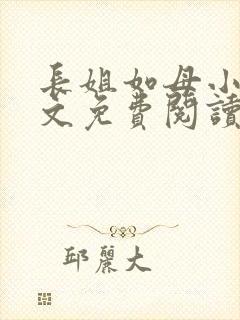 長姐如母小
文免費閱讀
邱麗大